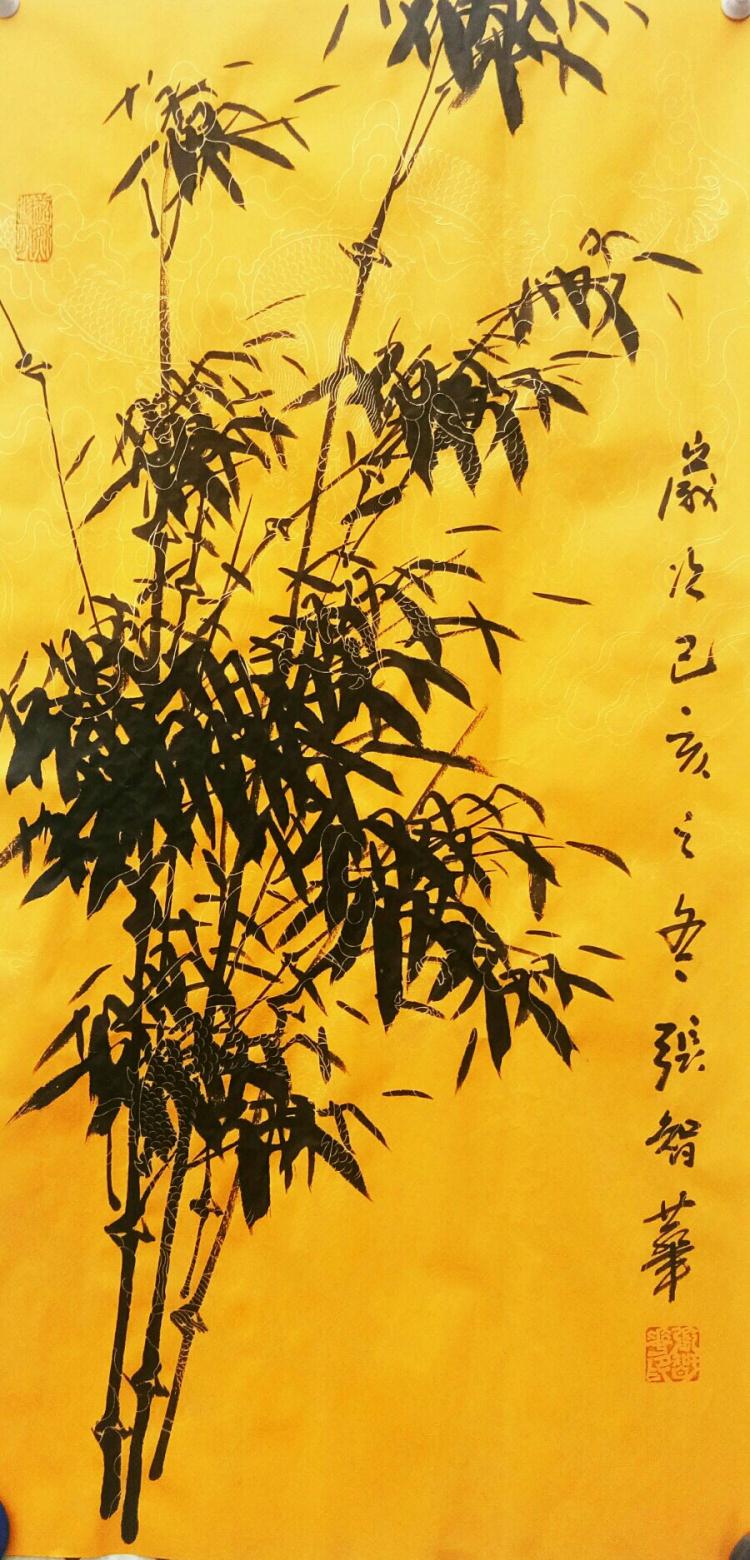 歲次己亥之冬張智華